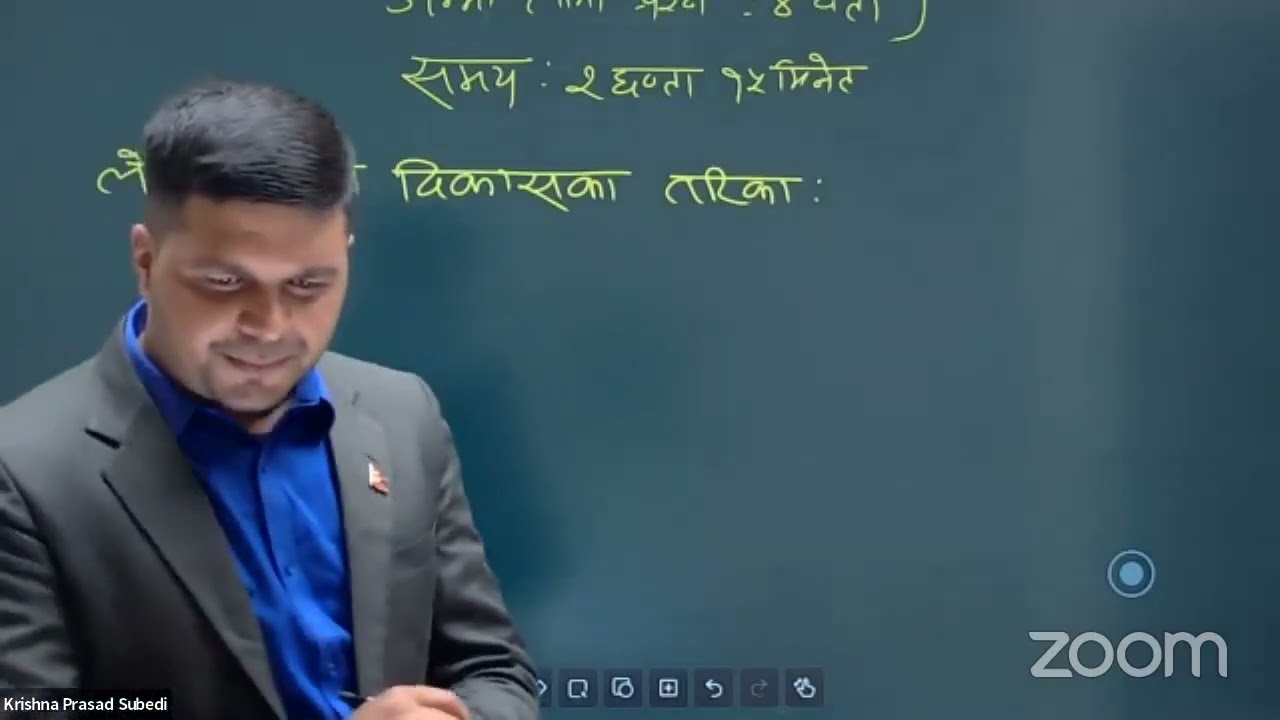 प्रश्न : ४ वटा )
समय : २ घण्टा १५ मिनेट
विकासका तरिका :
zoom
Krishna Prasad Subedi